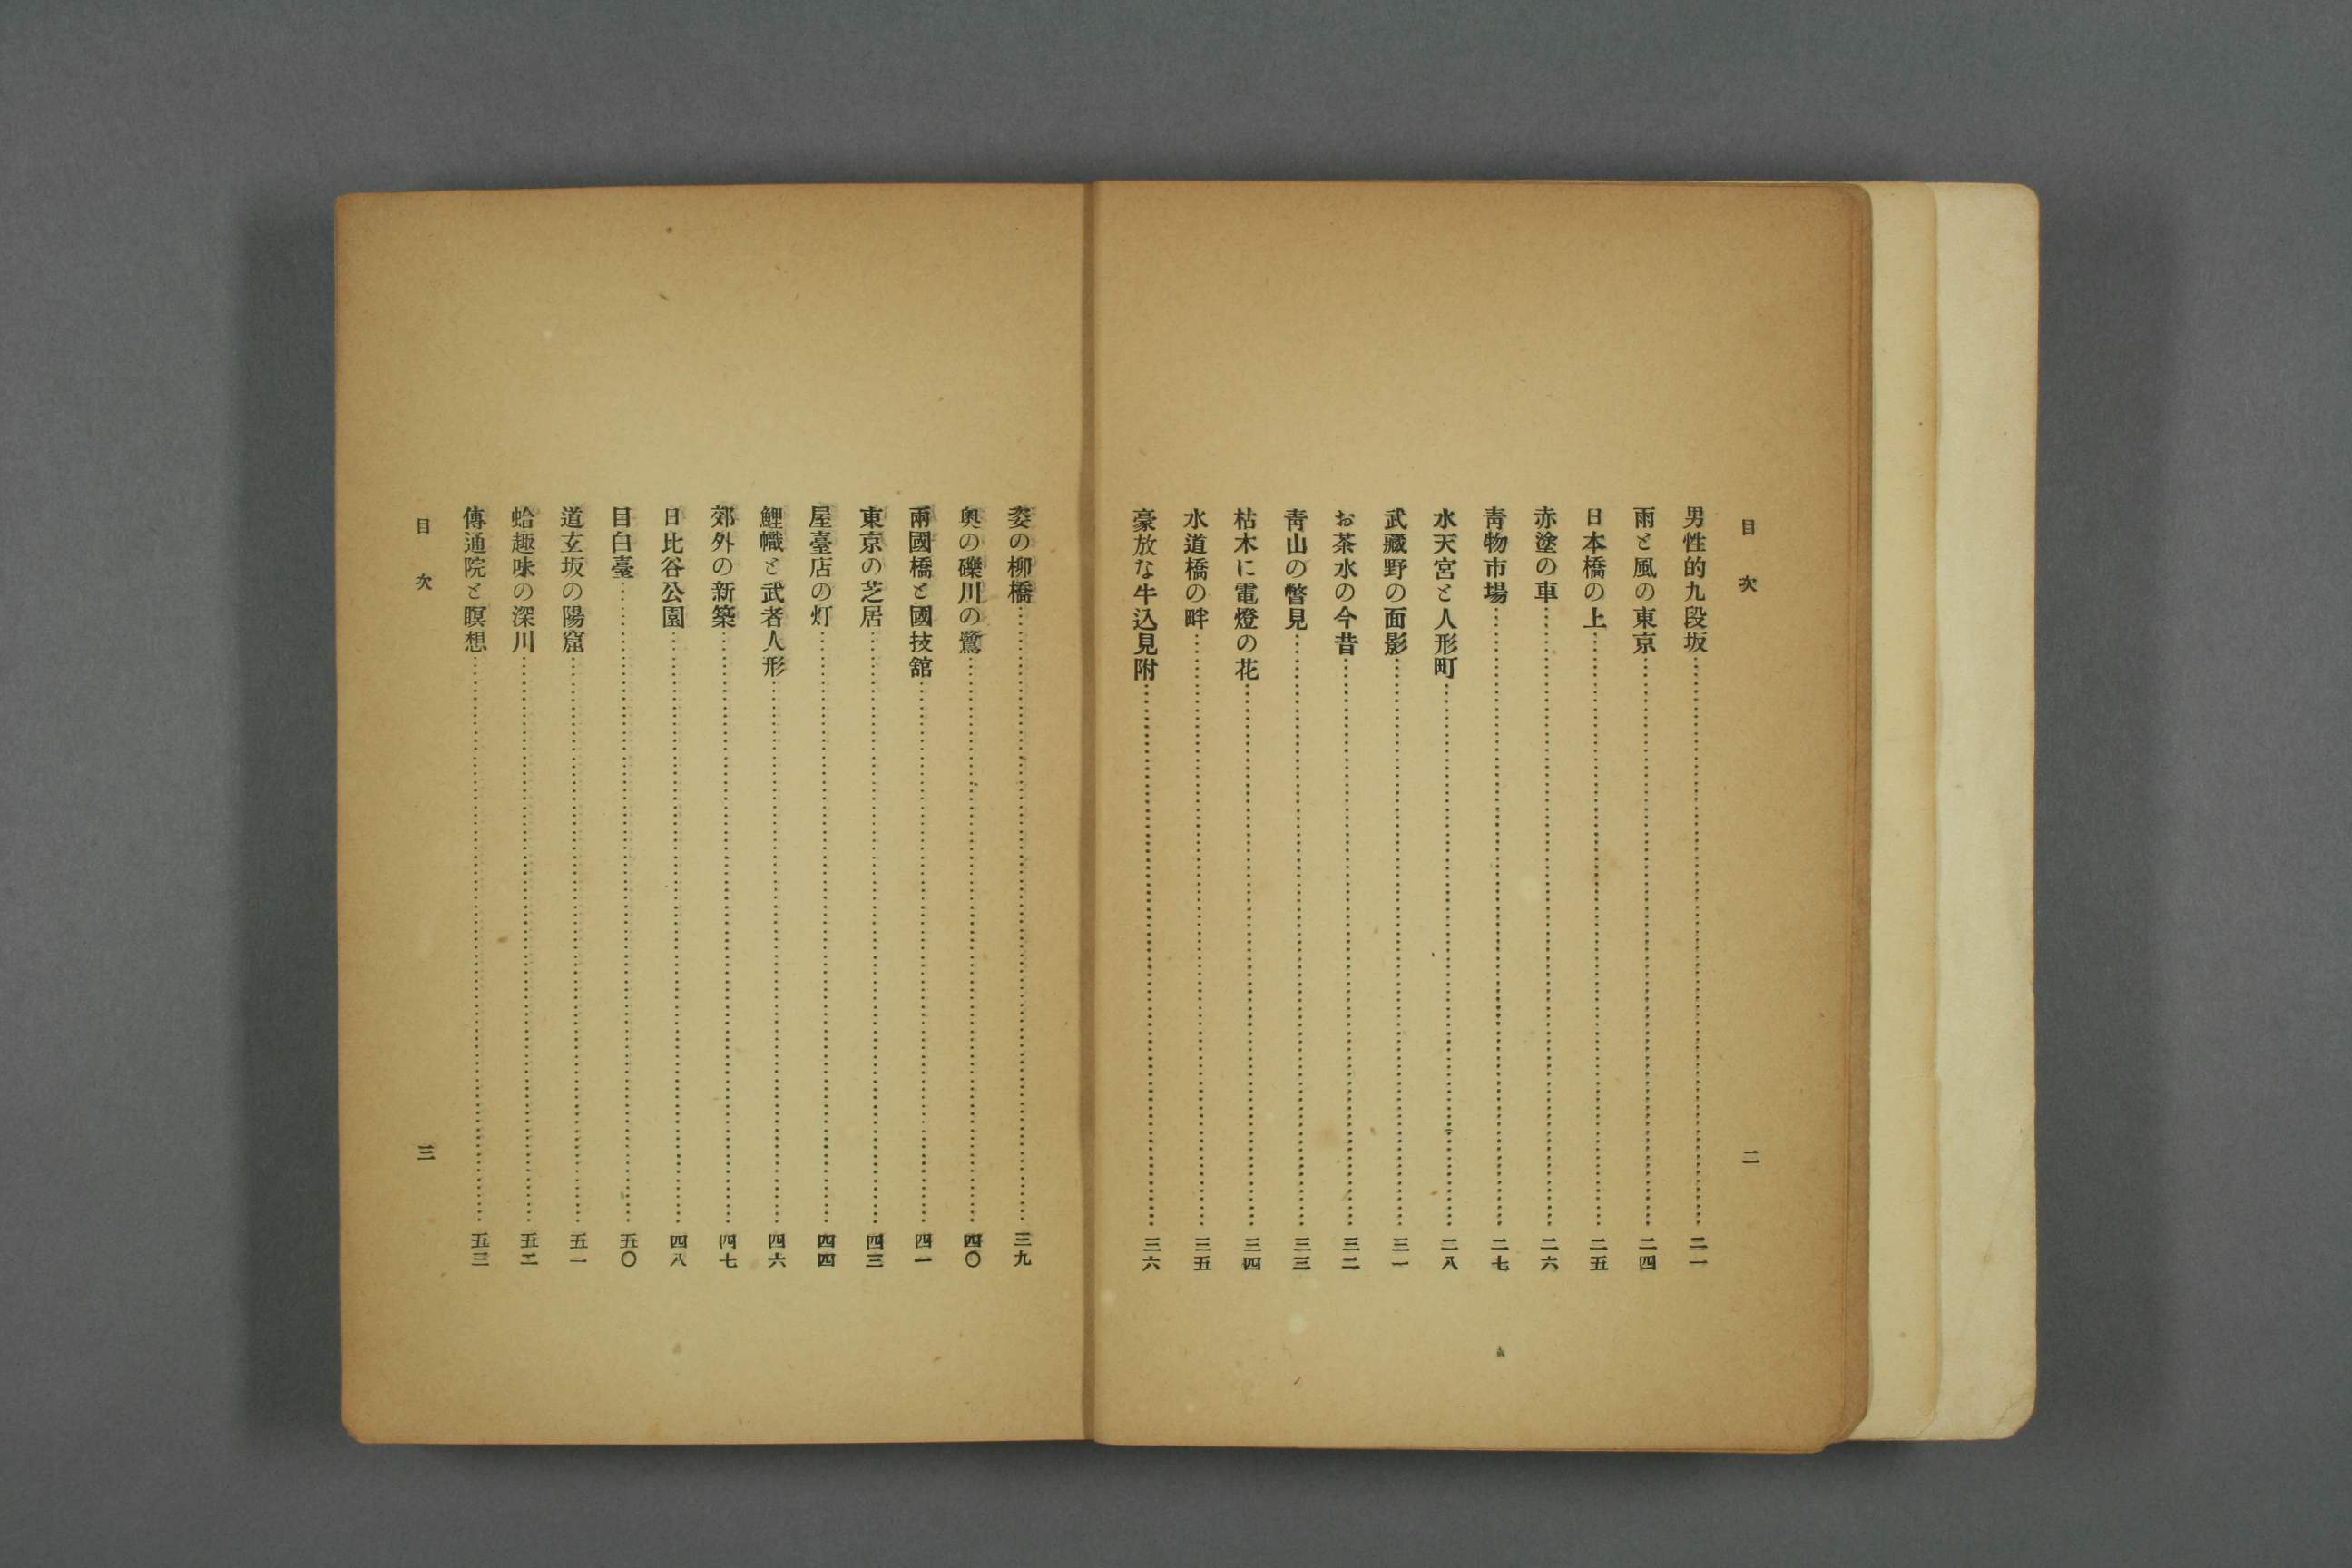 目次
二
男性的九段坂……二一
雨と風の東京……二四
日本橋の上……二五
赤塗の車……二六
靑物市場……二七
水天宮と人形町……二八
武藏野の面影……三一
お茶水の今昔……三二
靑山の瞥見……三三
枯木に電燈の花……三四
水道橋の畔……三五
豪放な牛込見附……三六
姿の柳橋……三九
奥の礫川の鷺……四〇
兩國橋と國技舘……四一
東京の芝居……四三
屋臺店の灯……四四
鯉幟と武者人形……四六
郊外の新築……四七
日比谷公園……四八
目白臺……五〇
道玄坂の陽窟……五一
蛤趣味の深川……五二
傳通院と瞑想……五三
目次
三